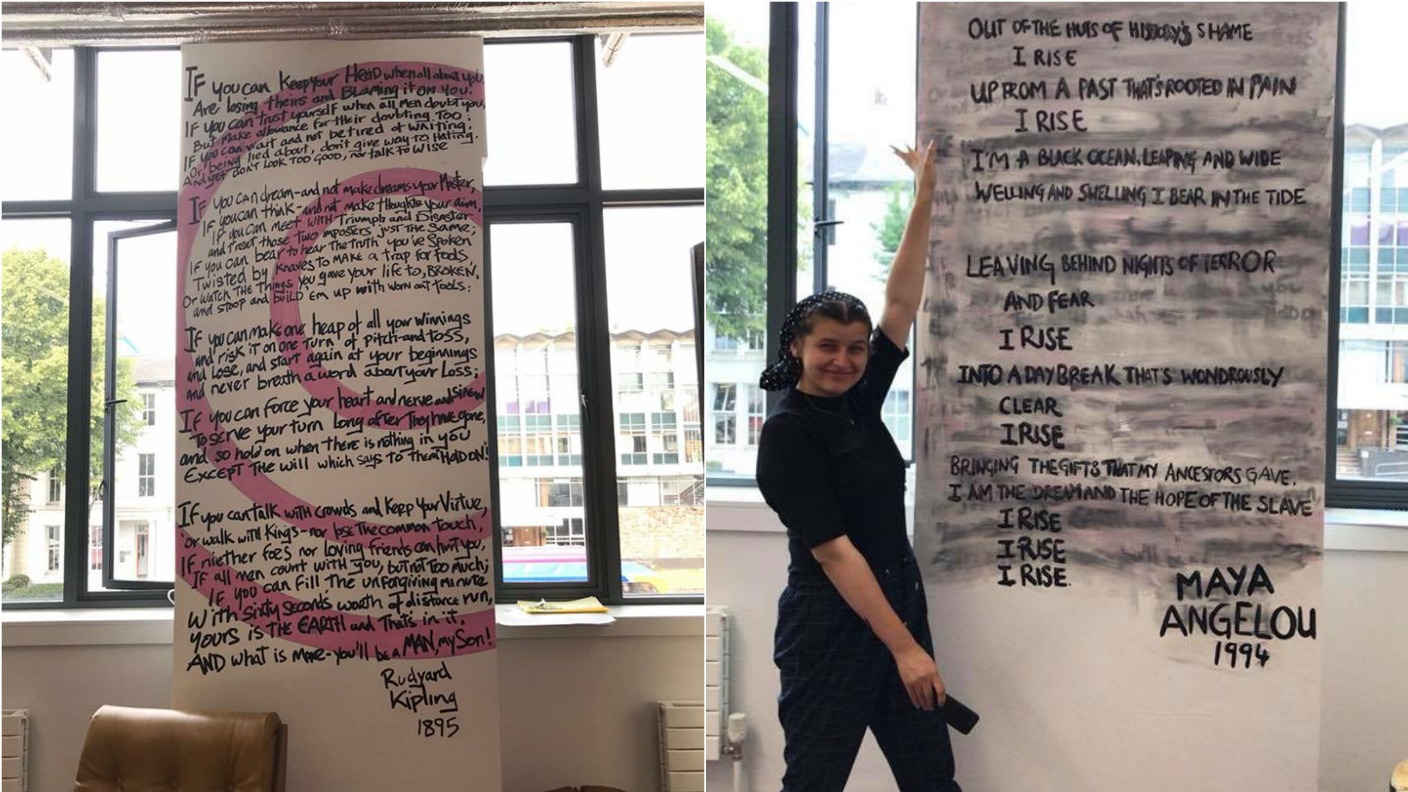 IF you can Keep your HEAD when all about you
Are losing theirs and BLAMING it on you!
If you can trust yourself when all men doubt you,
But make allowance for their doubting TOO:
IF you can wait and not be tired of waiting,
Or, being lied about, don't give way to Hating,
And yet don't LOOK TOO GOOD, nor talk to WISE
IF you can dream-and not make dreams your Master,
If you can think-and not make thoughts your aim,
If you can meet WITH Triumph and Disaster
and treat those TWO imposters just the SAME;
If you can bear to hear the truth you've Spoken
Twisted by knaves to MAKE a trap for fools,
Or watch THE things you gave your life to, BROKEN,
and stoop and BUILD 'EM up with worn out tools:
If you can make one heap of all your winnings
and risk it on one turn of pitch-and-toss,
and lose, and start again at your beginnings
and never breath a word about your Loss;
If you can force your heart and nerve and sinew
To serve your turn Long after They have gone,
and so hold on when there is nothing in you
Except THE will which says to them HOLD ON!
If you can talk with crowds and Keep Your Virtue,
or walk with Kings-nor lose The common touch,
If niether foes nor Loving friends can hurt you,
If all men count with you, but not too much;
If you can fill the unforgiving minute
With sixty seconds worth of distance run,
YOURS is THE EARTH and THATS in it,
AND what is More-you'll be a MAN, my Son!
Rudyard
Kipling
1895
OUT OF THE HUTS OF HISTORY'S SHAME
I RISE
UP FROM A PAST THAT'S ROOTED IN PAIN
I RISE
I'M A BLACK OCEAN, LEAPING AND WIDE
WELLING AND SWELLING I BEAR IN THE TIDE
LEAVING BEHIND NIGHTS OF TERROR
AND FEAR
I RISE
INTO A DAYBREAK THAT'S WONDROUSLY
CLEAR
I RISE
BRINGING THE GIFTS THAT MY ANCESTORS GAVE,
I AM THE DREAM AND THE HOPE OF THE SLAVE
I RISE
I RISE
I RISE.
MAYA
ANGELOU
1994